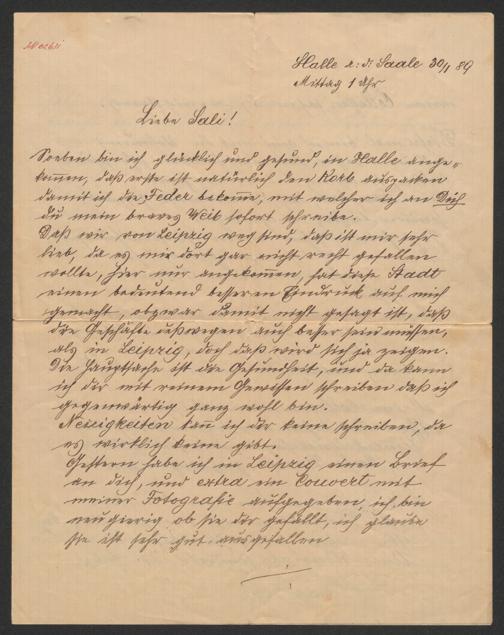 Halle a. d. Saale 30/1 89
Mittag 1 Uhr
Liebe Sali!
Soeben bin ich glücklich und gesund, in Halle ange-
kommen, daß erste ist natürlich den Korb auspacken
damit ich die Feder bekomme, mit welcher ich an Dich
du mein braves Weib sofort schreibe.
Daß wir von Leipzig weg sind, daß ist mir sehr
lieb, da es mir dort gar nicht recht gefallen
wollte, hier nur angekommen, hat diese Stadt
einen bedeutend besseren Eindruck auf mich
gemacht, obzwar damit nicht gesagt ist, daß
die Geschäfte deßwegen auch besser sein müssen,
als in Leipzig, doch daß wird sich ja zeigen.
Die Hauptsache ist die Gesundheit, und da kann
ich dir mit reinem Gewissen schreiben daß ich
gegenwärtig ganz wohl bin.
Neuigkeiten kann ich dir keine schreiben, da
es wirklich keine gibt.
Gestern habe ich in Leipzig einen Brief
an dich, und extra ein Couvert mit
meiner Fotografie aufgegeben, ich bin
neugierig ob sie dir gefällt, ich glaube
sie ist sehr gut ausgefallen